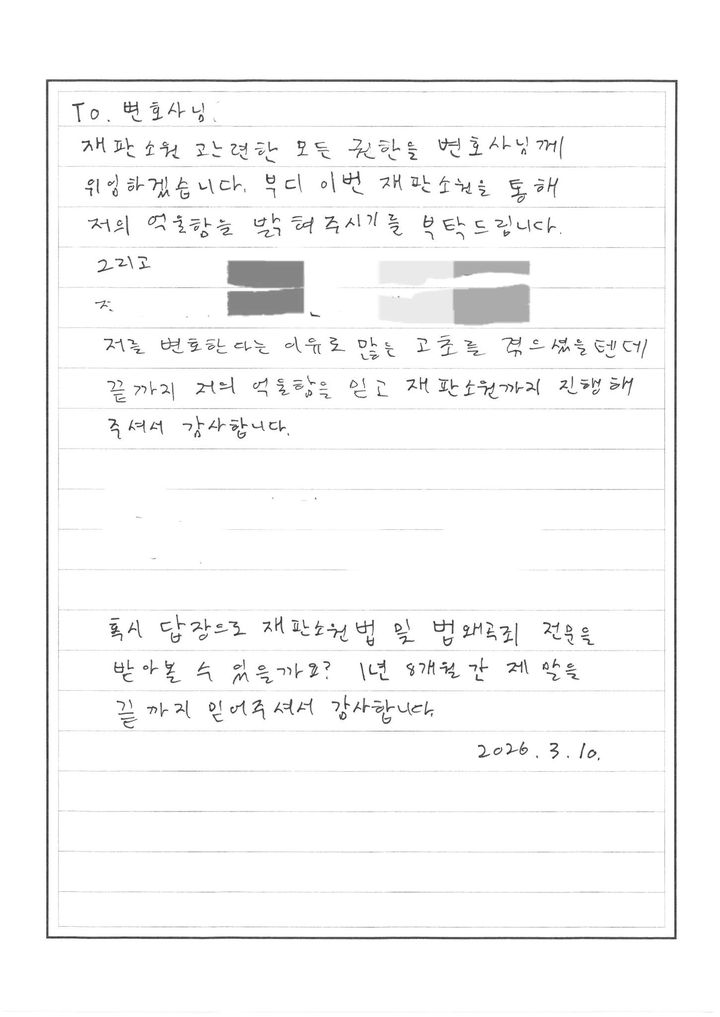 To. 변호사님.
재판소원 관련한 모든 권한을 변호사님께
위임하겠습니다. 부디 이번 재판소원을 통해
저의 억울함을 밝혀주시기를 부탁드립니다.
그리고
저를 변호한다는 이유로 많은 고초를 겪으셨을텐데
끝까지 저의 억울함을 믿고 재판소원까지 진행해
주셔서 감사합니다.
혹시 답장으로 재판소원법 및 법왜곡죄 전문을
받아볼 수 있을까요? 1년 8개월 간 제 말을
끝까지 믿어주셔서 감사합니다.
2026. 3. 10.